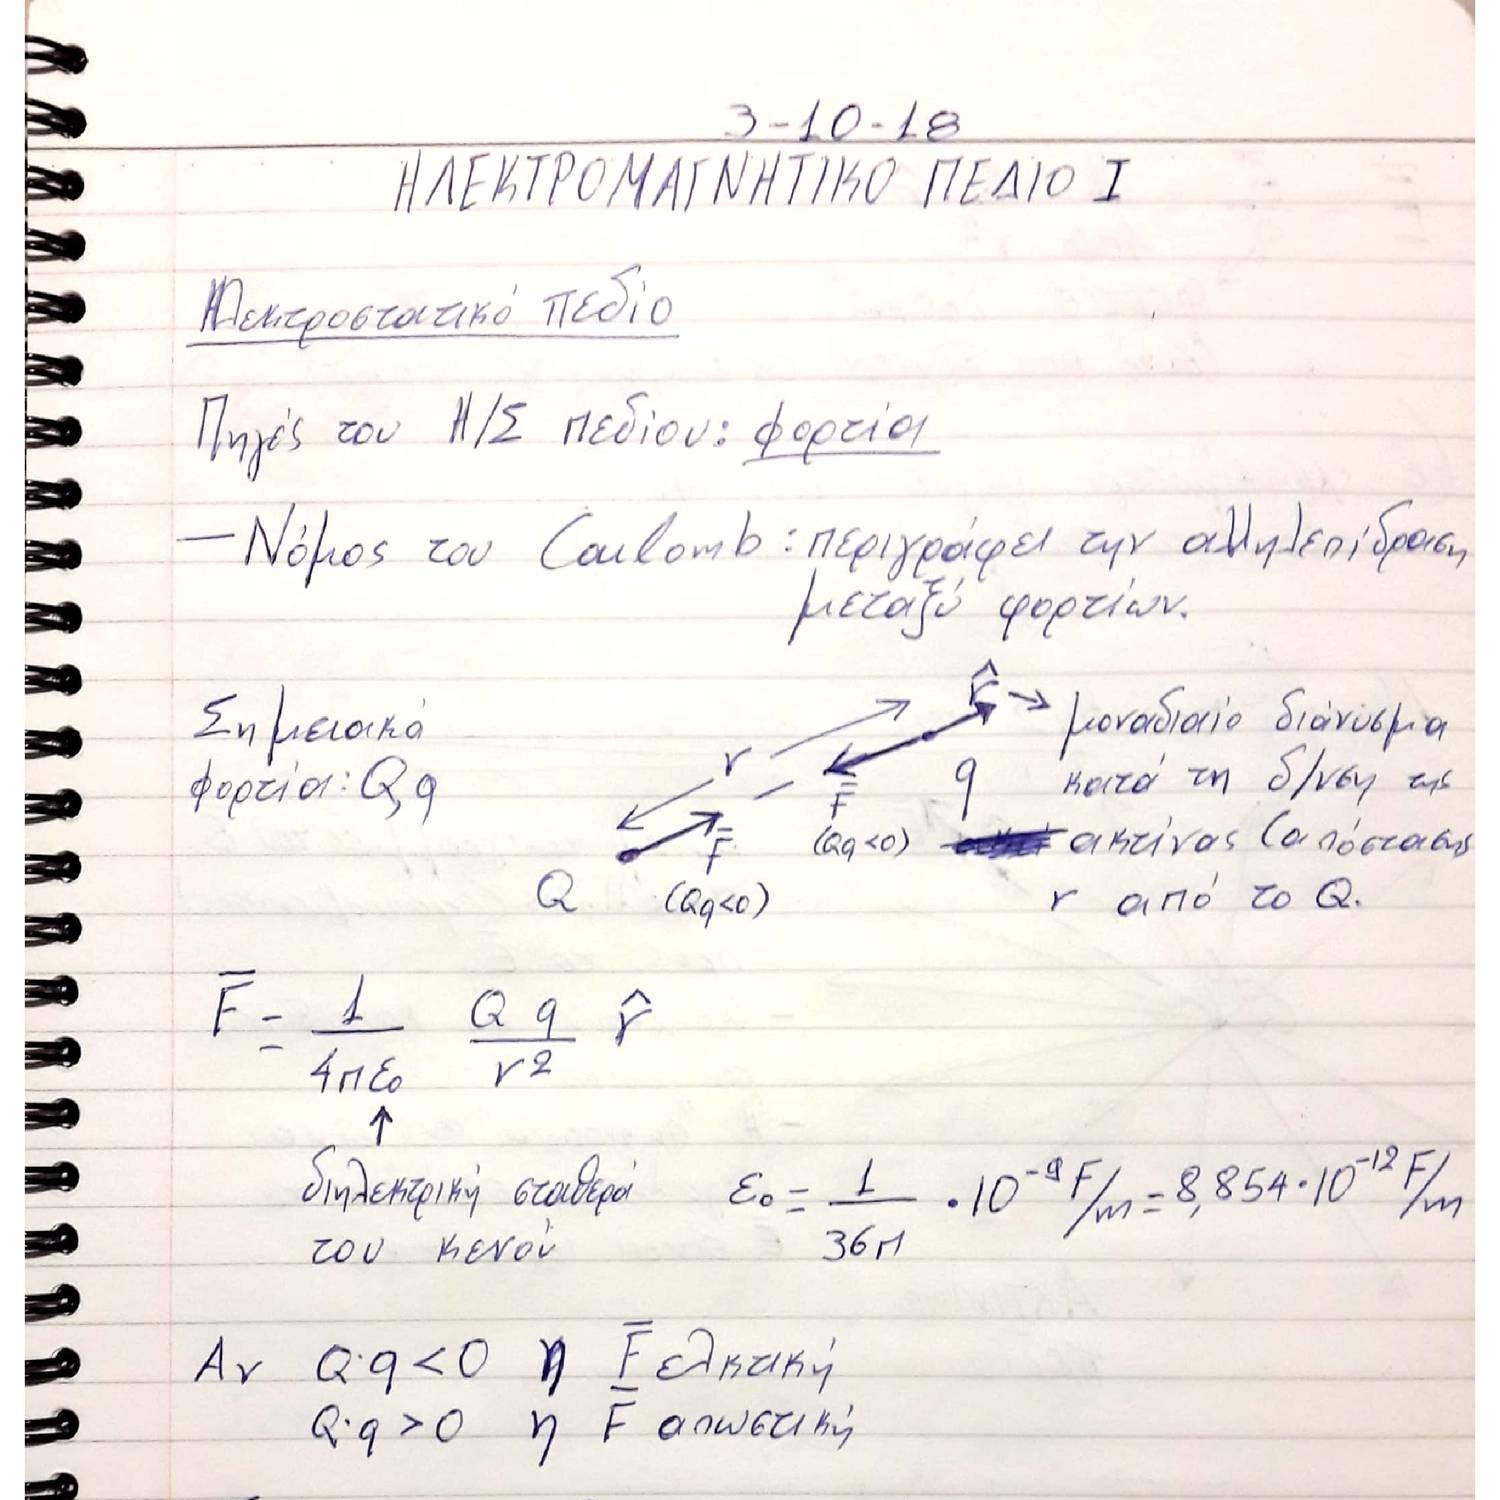 3-10-18
ΗΛΕΚΤΡΟΜΑΓΝΗΤΙΚΟ ΠΕΔΙΟ Ι
Ηλεκτροστατικό πεδίο
Πηγές του Η/Σ πεδίου: φορτία
— Νόμος του Coulomb: περιγράφει την αλληλεπίδραση
μεταξύ φορτίων.
Σημειακά
φορτία: Q,q
r
r̂ → μοναδιαίο διάνυσμα
κατά τη δ/νση της
ακτίνας (απόστασης
r από το Q.
q
F̄
(Qq<0)
F̄
(Qq<0)
Q
F̄ = 1/4πε₀ Qq/r² r̂
↑
διηλεκτρική σταθερά
του κενού
ε₀ = 1/36π · 10⁻⁹ F/m = 8,854·10⁻¹² F/m
Αν Q·q<0 η F̄ ελκτική
Q·q>0 η F̄ απωστική